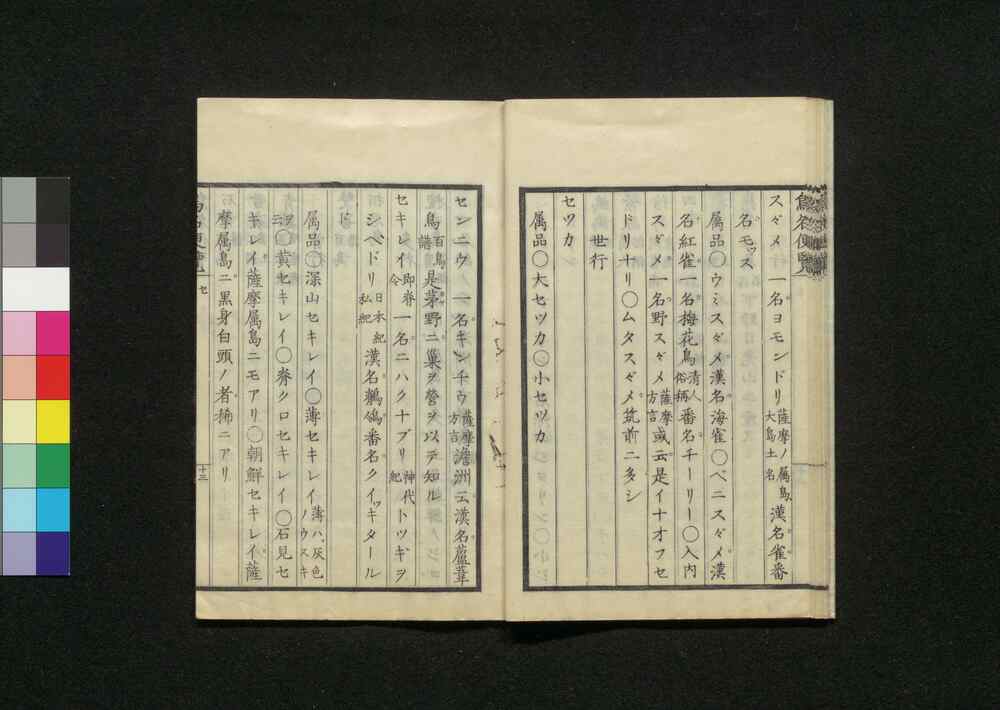 スヾメ 一名ヨモンドリ 薩摩ノ属島大島土名 漢名雀番
名モッス
属品〇ウミスヾメ漢名海雀〇ベニスヾメ漢
名紅雀一名梅花鳥 清人俗称 番名チーリー〇入内
スヾメ一名野スヾメ 薩摩方言 或云是イナオフセ
ドリナリ〇ムタスヾメ筑前ニ多シ
世行
セツカ
属品〇大セツカ〇小セツカ
センニウ 一名キンチウ 薩摩方言 澹洲云漢名蘆葦
鳥 百鳥譜 是茅野ニ巣ヲ営ヲ以テ知ル
セキレイ 即脊令 一名ニハクナブリ 神代紀 トツギヲ
シベドリ 日本紀私紀 漢名鶺鴒番名クイッキタール
ド
属品〇深山セキレイ〇薄セキレイ 薄ハ灰色ノウスキ
ヲ云 〇黄セキレイ〇脊クロセキレイ〇石見セ
キレイ薩摩属島ニモアリ〇朝鮮セキレイ薩
摩属島ニ黒身白頭ノ者稀ニアリ
セ
十三